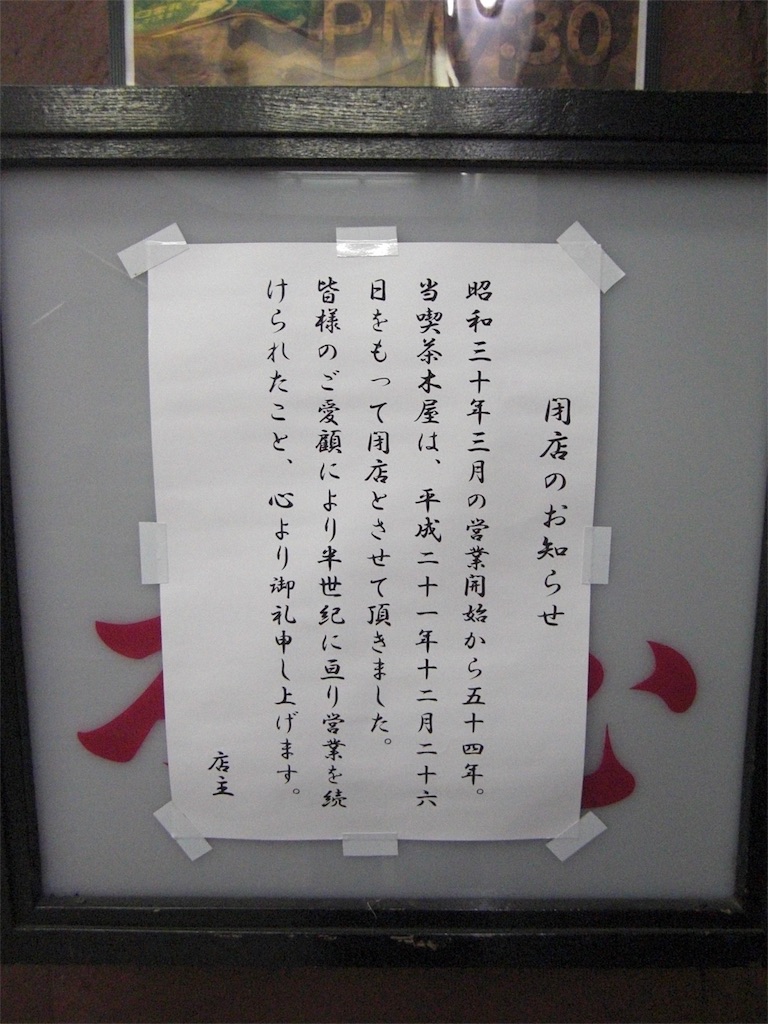 PM7:30
閉店のお知らせ
昭和三十年三月の営業開始から五十四年。
当喫茶木屋は、平成二十一年十二月二十六
日をもって閉店とさせて頂きました。
皆様のご愛顧により半世紀に亘り営業を続
けられたこと、心より御礼申し上げます。
店主